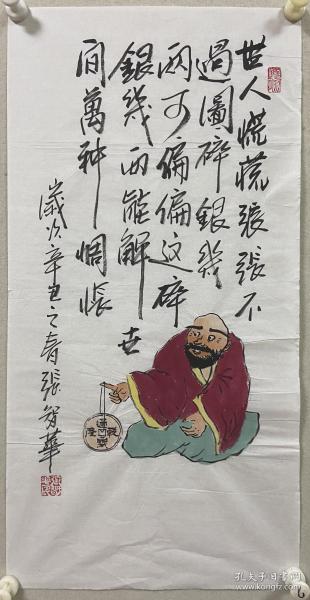 世人慌慌張張不
過圖碎銀幾
兩可偏偏這碎
銀幾兩能解世
间萬种惆悵
歲次辛丑之春張智華
孔夫子旧书网
www.kongfz.com